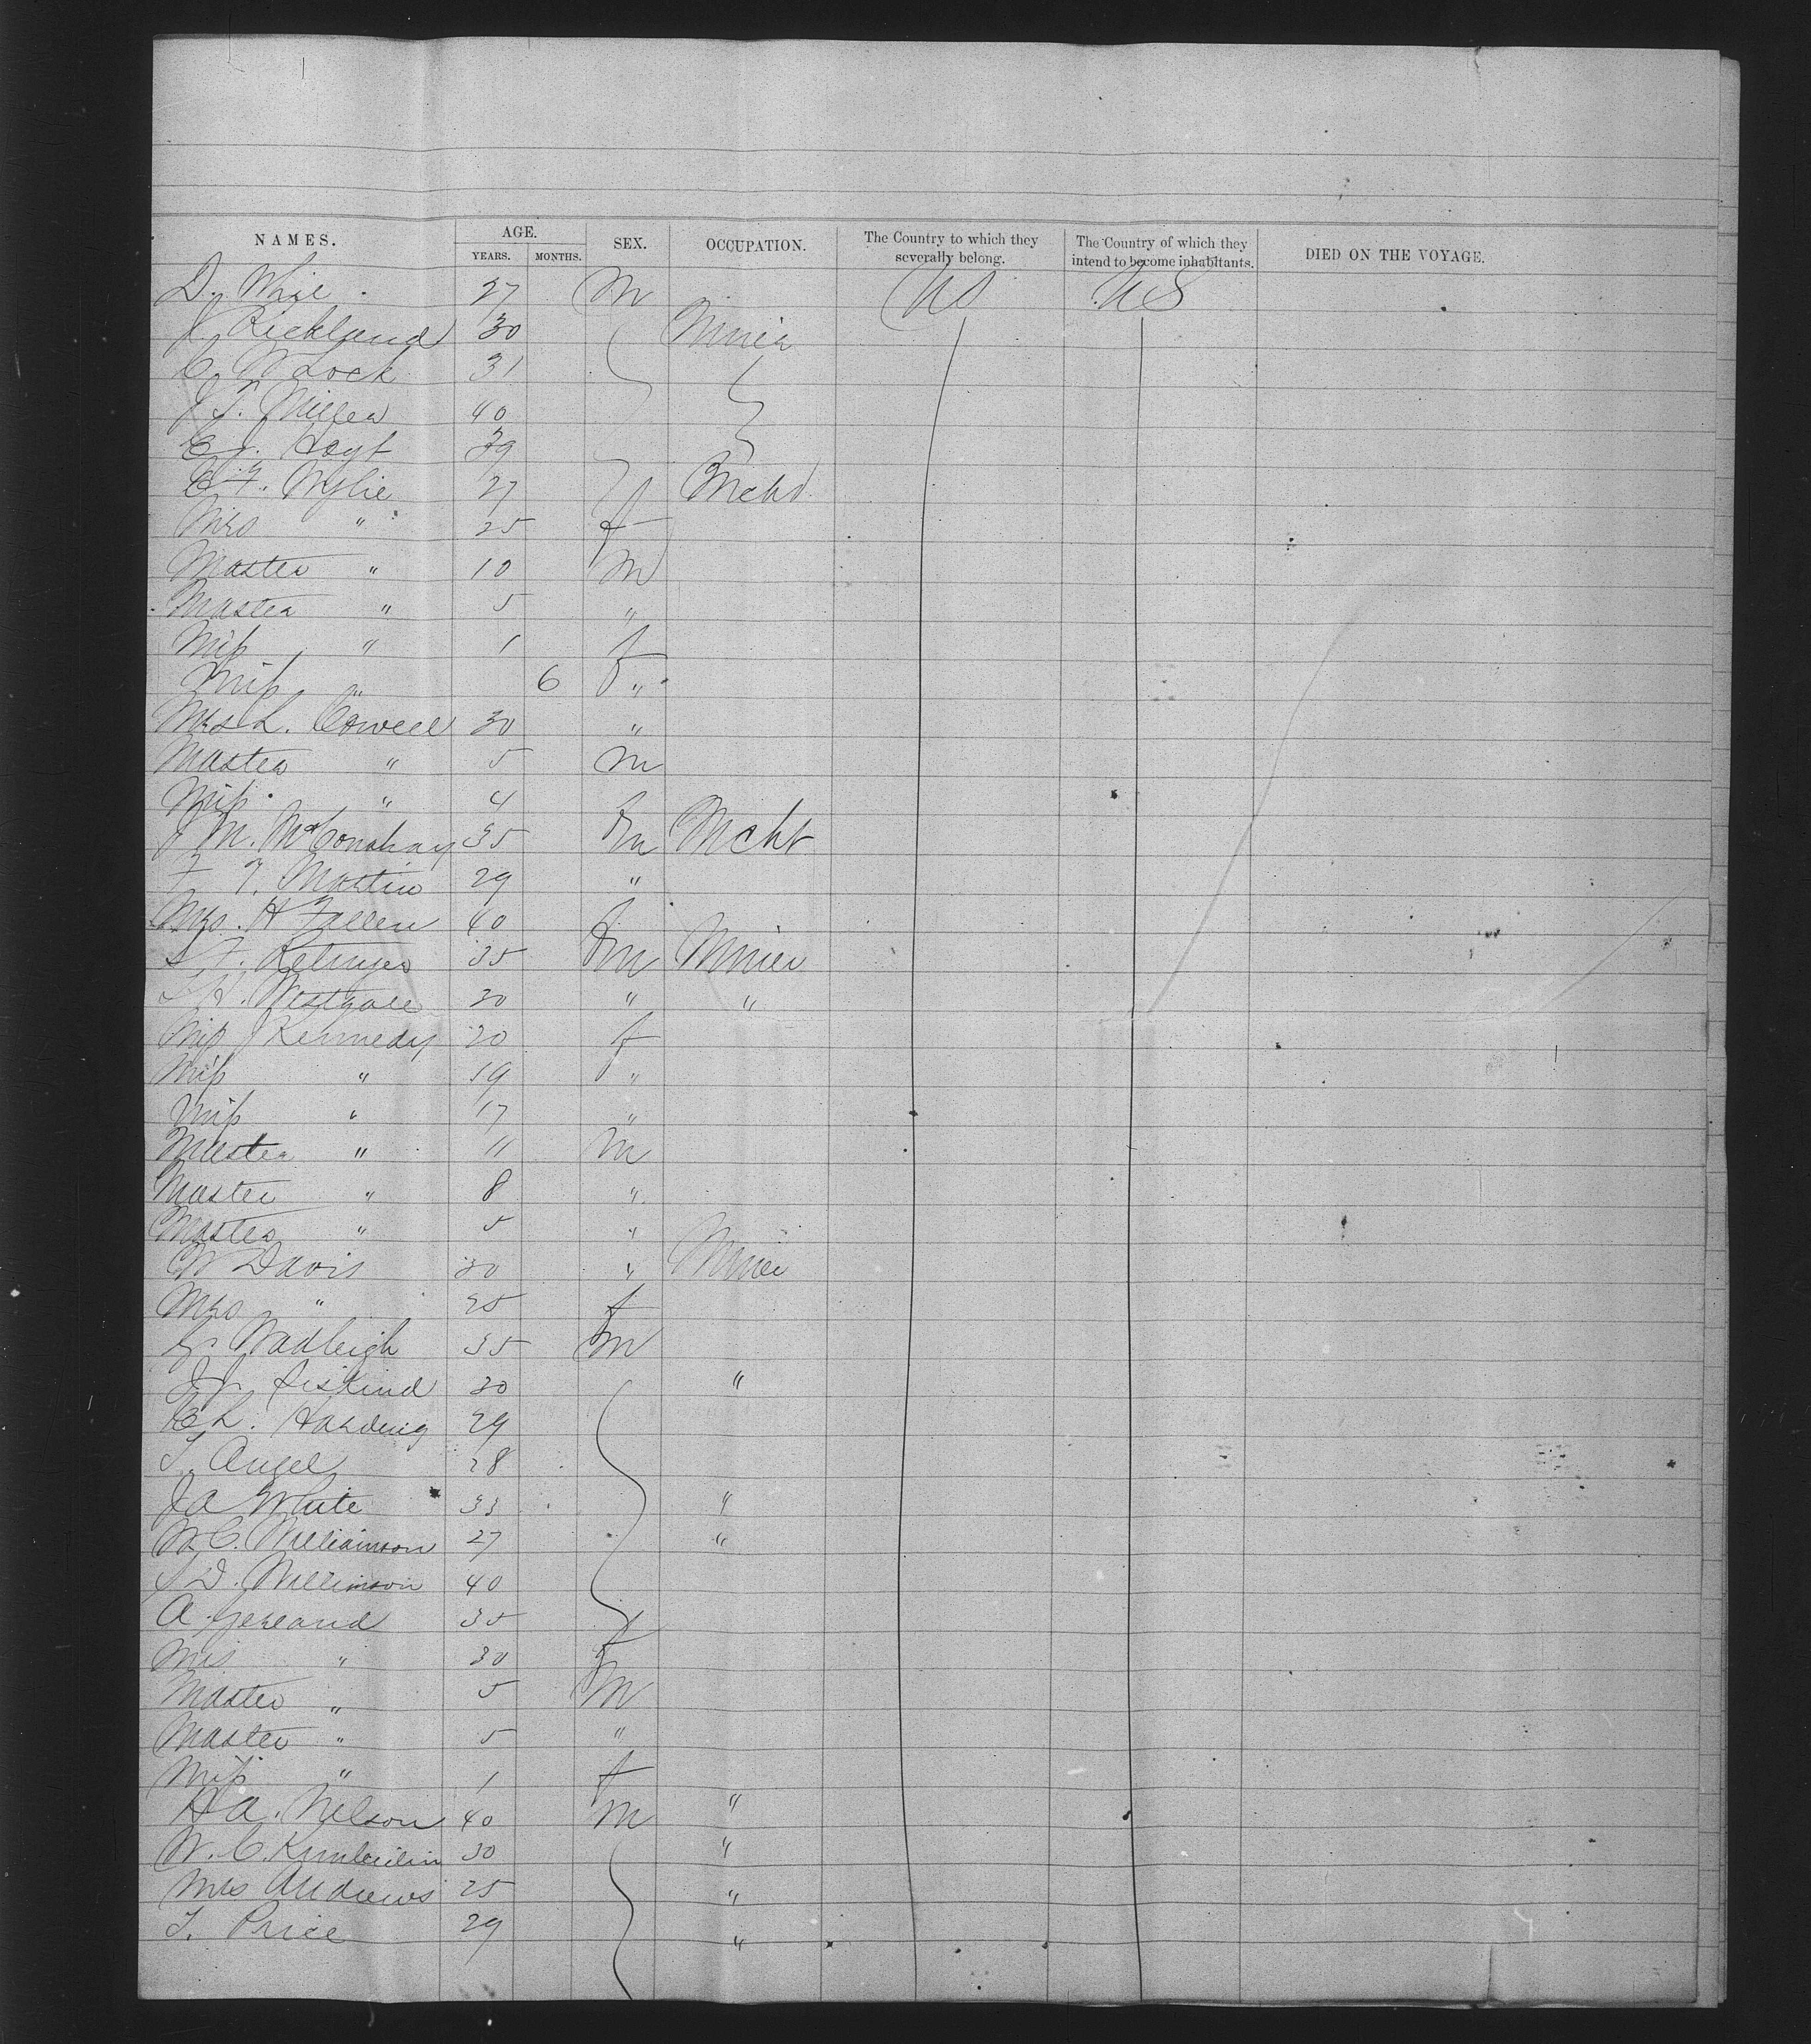 NAMES. AGE. SEX. OCCUPATION. The Country to which they severally belong. The Country of which they intend to become inhabitants. DIED ON THE VOYAGE.
YEARS. MONTHS.
D. 27 M US US
J. Rickland 30 Miner
C. W Lock 31
J T. Miller 40
C J. Hoyt 39
C F. Wylie 27 Mcht
Mrs " 25 f
Master " 10 M
Master " 5 "
Miss " 1 f
Miss " 6 "
Mrs L. Cowell 30 "
Master " 5 M
Miss " 4 f
J M. McConahay 35 M Mcht
F T. Martin 29 "
Mrs. H Fallen 40 f
S F. 35 M Miner
S H. 30 " "
Miss J Kennedy 20 f
Miss " 19 "
Miss " 17 "
Master " 11 M
Master " 8 "
Master " 5 "
W Davis 30 " Miner
Mrs " 25 f
G. Wadleigh 35 M
J J. 30 "
C L. Harding 29
T. Angel 28
J A White 33 "
W C. Williamson 27 "
S D. 40
A. Gerland 35
Mrs " 30 f
Master " 5 M
Master " 5 "
Miss " 1 f
H A. Nelson 40 M "
W. C. Kimberlin 30 "
Mrs Andrews 25 "
T. Price 29 "